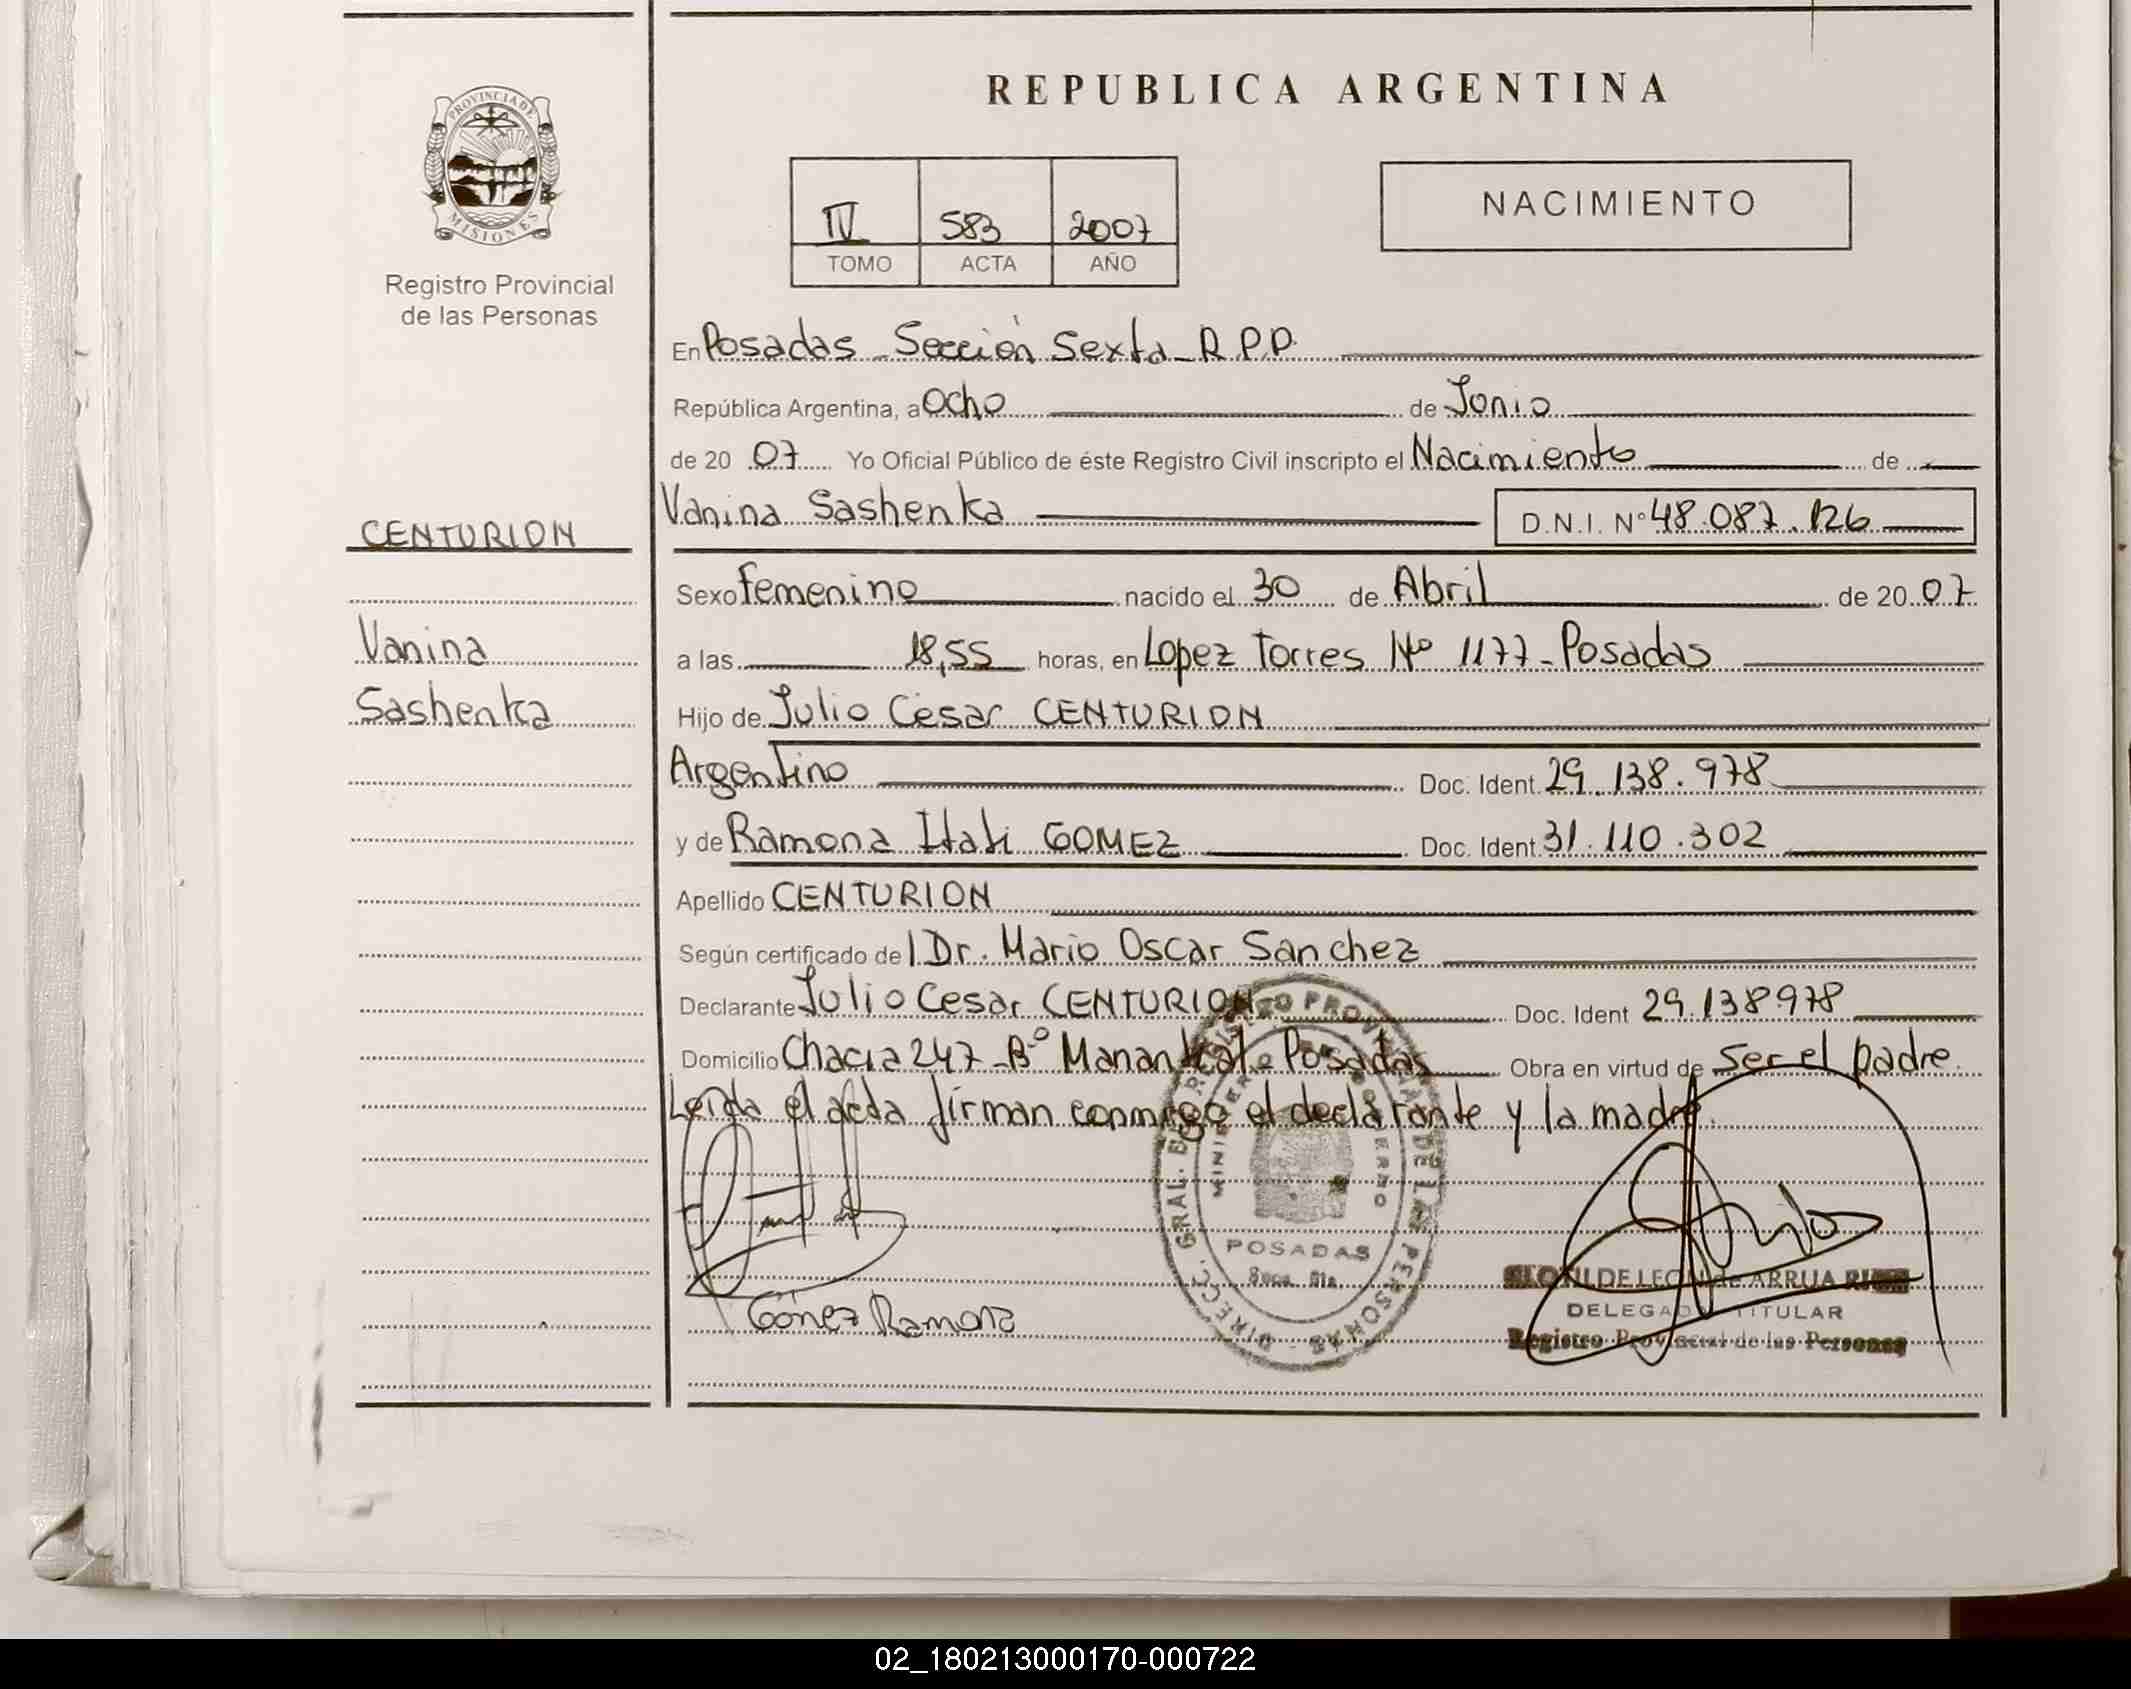 REPUBLICA ARGENTINA
PROVINCIA DE
MISIONES
Registro Provincial
de las Personas
IV 583 2007
TOMO ACTA AÑO
NACIMIENTO
En Posadas - Sección Sexta - R.P.P.
República Argentina, a Ocho de Junio
de 20 07 Yo Oficial Público de éste Registro Civil inscripto el Nacimiento de
Vanina Sashenka D.N.I. Nº 48.087.126
CENTURION
Sexo Femenino nacido el 30 de Abril de 20 07
Vanina
a las 18,55 horas, en Lopez Torres Nº 1177 - Posadas
Sashenka
Hijo de Julio Cesar CENTURION
Argentino Doc. Ident. 29.138.978
y de Ramona Itati GOMEZ Doc. Ident. 31.110.302
Apellido CENTURION
Según certificado de l Dr. Mario Oscar Sanchez
Declarante Julio Cesar CENTURION Doc. Ident 29.138978
Domicilio Chacra 247 - Bº Manantial - Posadas Obra en virtud de ser el padre.
Leida el acta firman conmigo el declarante y la madre.
DIRECC. GRAL. DEL REGISTRO PROVINCIAL DE LAS PERSONAS
MINISTERIO DE GOBIERNO
POSADAS
Secc. 6ta.
Gómez Ramona
DE LEON de ARRUA
DELEGADO TITULAR
Registro Provincial de las Personas
02_180213000170-000722